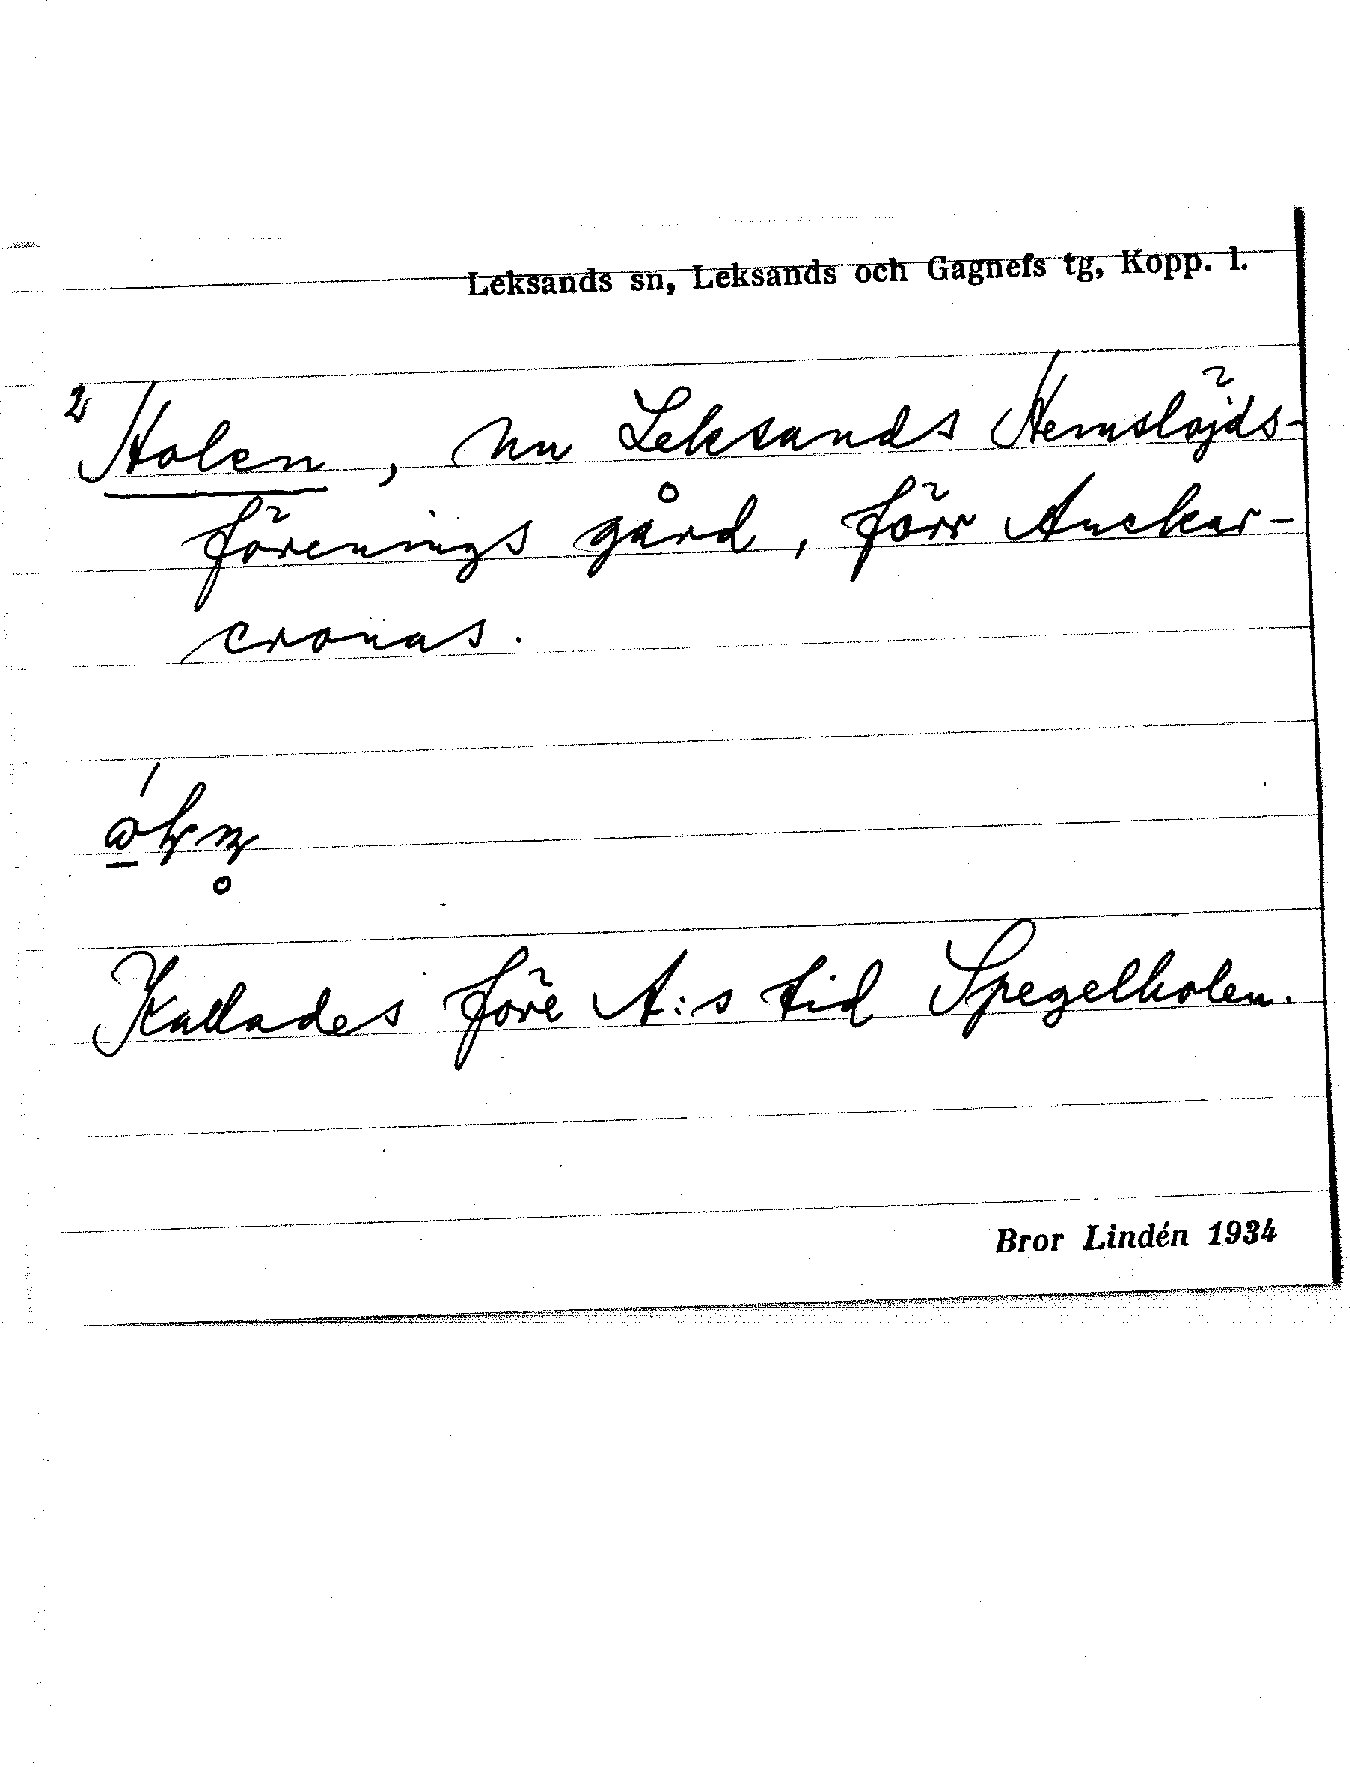 Leksands sn, Leksands och Gagnefs tg, Kopp. l.
2 Holen, nu Leksands Hemslöjds-
förenings gård, förr Anckar-
cronas.
Kallades före A:s tid Spegelholen.
Bror Lindén 1934